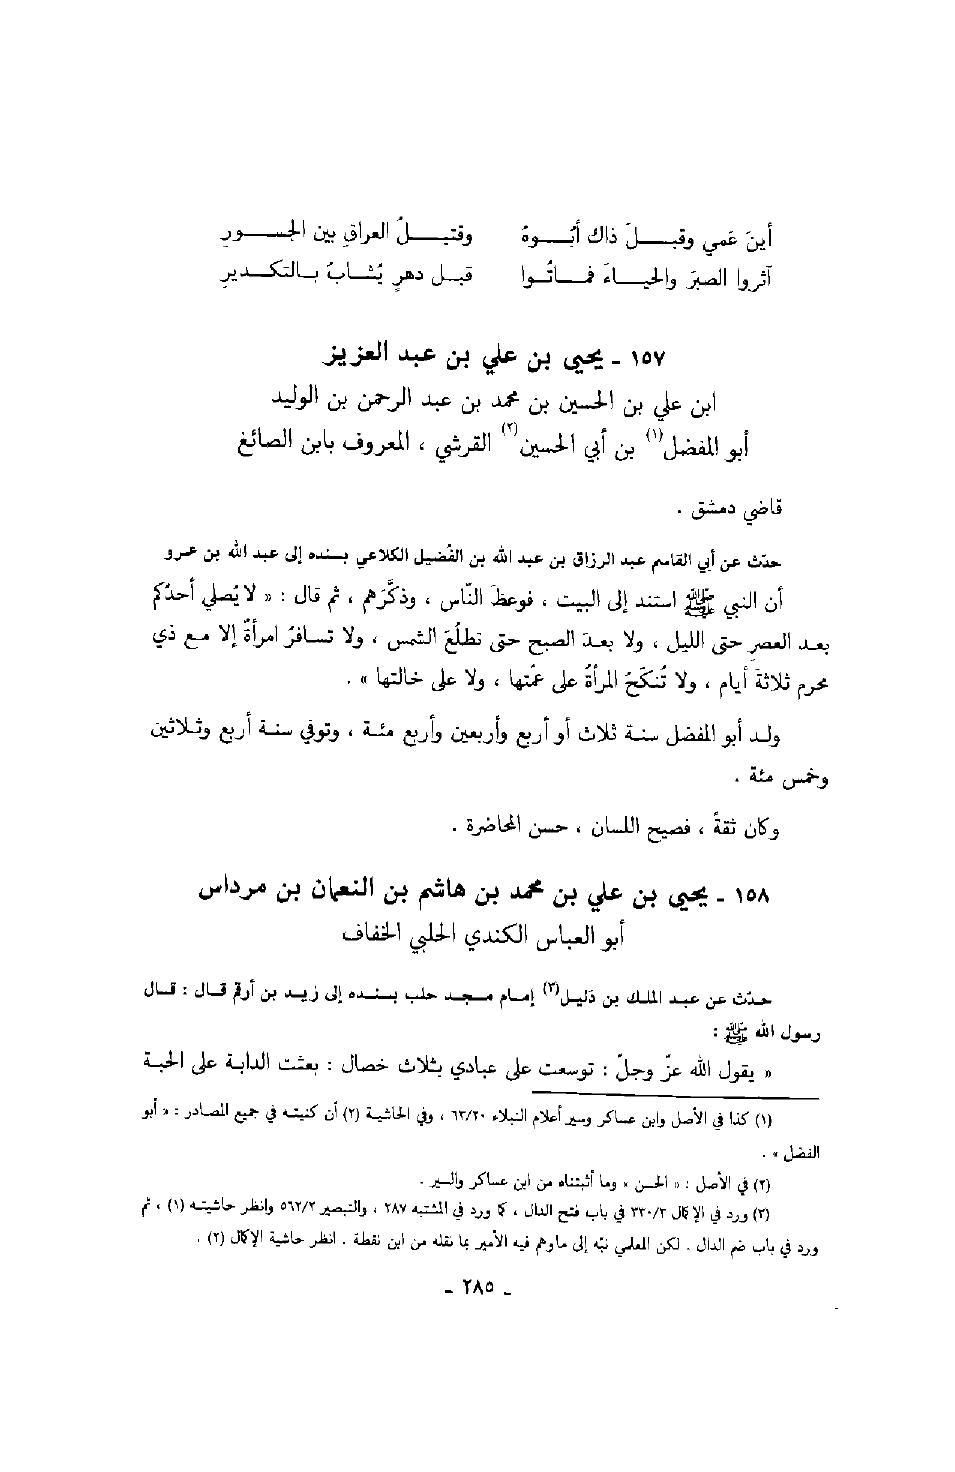 أينَ عَمي وقبـــــلَ ذاك أبُـــوهُ وقتيـــــلُ العراقِ بين الجســـورِ
آثروا الصبرَ والحيـــاءَ فمـــاتُـوا قبـل دهرٍ يُشـابُ بـالتكـدير
١٥٧ ـ يحيى بن علي بن عبد العزيز
ابن علي بن الحسين بن محمد بن عبد الرحمن بن الوليد
أبو المفضل(١) بن أبي الحسين(٢) القرشي ، المعروف بابن الصائغ
قاضي دمشق .
حدّث عن أبي القاسم عبد الرزاق بن عبد الله بن الفُضيل الكلاعي بسنده إلى عبد الله بن عمرو
أن النبي ﷺ استند إلى البيت ، فوعظَ النّاس ، وذكَّرَهم ، ثم قال : « لا يُصلي أحدُكم
بعد العصرِ حتى الليل ، ولا بعدَ الصبح حتى تطلُعَ الشمس ، ولا تسافرُ امرأةٌ إلا مع ذي
محرم ثلاثةَ أيام ، ولا تُنكَحُ المرأةُ على عمّتها ، ولا على خالتها » .
ولد أبو المفضل سنة ثلاث أو أربع وأربعين وأربع مئة ، وتوفي سنة أربع وثلاثين
وخمس مئة .
وكان ثقةً ، فصيح اللسان ، حسن المحاضرة .
١٥٨ ـ يحيى بن علي بن محمد بن هاشم بن النعمان بن مرداس
أبو العباس الكندي الحلبي الخفاف
حدّث عن عبد الملك بن دَليل(٣) إمام مسجد حلب بسنده إلى زيد بن أرقم قال : قال
رسول الله ﷺ :
« يقول الله عزّ وجلّ : توسعت على عبادي بثلاث خصال : بعثت الدابة على الحبة
(١) كذا في الأصل وابن عساكر وسير أعلام النبلاء ٦٣/٢٠ ، وفي الحاشية (٢) أن كنيته في جميع المصادر : « أبو
الفضل » .
(٢) في الأصل : « الحسن » وما أثبتناه من ابن عساكر والسير .
(٣) ورد في الإكمال ٣٣٠/٣ في باب فتح الدال ، كما ورد في المشتبه ٢٨٧ ، والتبصير ٥٦٢/٢ وانظر حاشيته (١) ، ثم
ورد في باب ضم الدال . لكن المعلمي نبّه إلى ماوهم فيه الأمير بما نقله من ابن نقطة . انظر حاشية الإكمال (٢) .
ـ ٢٨٥ ـ